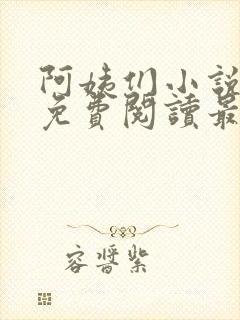 阿姨们小說
免費閱讀最
容晉紫